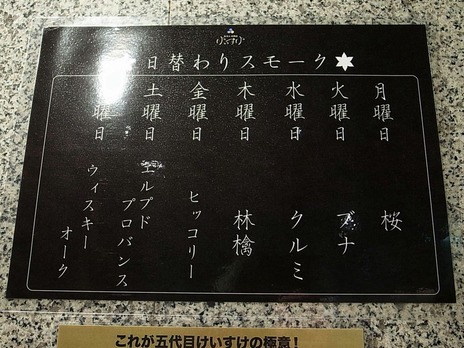 日替わりスモーク
月曜日 桜
火曜日 ブナ
水曜日 クルミ
木曜日 林檎
金曜日 ヒッコリー
土曜日 エルブド
プロバンス
曜日 ウィスキー
オーク
これが五代目けいすけの極意!